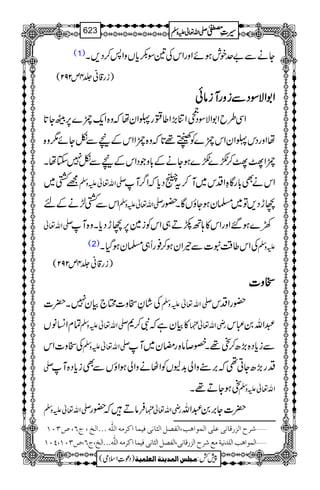 سیرتِ مصطفیٰ صلی اللہ تعالیٰ علیہ وسلم 623
جانے سے بے حد خوش ہوئے اور اس کی تین سو بکریاں واپس کر دیں۔ (1)
(زرقانی جلد۴ ص۲۹۲)
ابوالاسود سے زور آزمائی
اسی طرح ابوالاسود جمحی اتنا بڑا طاقتور پہلوان تھا کہ وہ ایک چمڑے پر بیٹھ جاتا
تھا اور دس پہلوان اس چمڑے کو کھینچتے تھے تاکہ وہ چمڑا اس کے نیچے سے نکل جائے مگر وہ
چمڑا پھٹ پھٹ کر ٹکڑے ٹکڑے ہو جانے کے باوجود اس کے نیچے سے نکل نہیں سکتا تھا۔
اس نے بھی بارگاہِ اقدس میں آ کر یہ چیلنج دیا کہ اگر آپ صلی اللہ تعالیٰ علیہ وسلم مجھے کشتی میں
پچھاڑ دیں تو میں مسلمان ہو جاؤں گا۔ حضور صلی اللہ تعالیٰ علیہ وسلم اس سے کشتی لڑنے کے لئے
کھڑے ہو گئے اور اس کا ہاتھ پکڑتے ہی اس کو زمین پر پچھاڑ دیا۔ وہ آپ صلی اللہ تعالیٰ
علیہ وسلم کی اس طاقت نبوت سے حیران ہو کر فوراً ہی مسلمان ہو گیا۔ (2)
(زرقانی جلد۴ ص۲۹۲)
سخاوت
حضور اقدس صلی اللہ تعالیٰ علیہ وسلم کی شان سخاوت محتاج بیان نہیں۔ حضرت
عبداللہ بن عباس رضی اللہ تعالیٰ عنہما کا بیان ہے کہ نبی کریم صلی اللہ تعالیٰ علیہ وسلم تمام انسانوں
سے زیادہ بڑھ کر سخی تھے۔ خصوصاً ماہ رمضان میں آپ صلی اللہ تعالیٰ علیہ وسلم کی سخاوت اس
قدر بڑھ جاتی تھی کہ برسنے والی بدلیوں کو اٹھانے والی ہواؤں سے بھی زیادہ آپ صلی
اللہ تعالیٰ علیہ وسلم سخی ہو جاتے تھے۔
حضرت جابر بن عبداللہ رضی اللہ تعالیٰ عنہما فرماتے ہیں کہ حضور صلی اللہ تعالیٰ علیہ وسلم
شرح الزرقانی علی المواھب، الفصل الثانی فیما اکرمہ اللّٰہ...الخ، ج۶، ص۱۰۳
المواھب اللدنیۃ مع شرح الزرقانی، الفصل الثانی فیما اکرمہ اللّٰہ...الخ، ج۶، ص۱۰۳،۱۰۴
پیش کش: مجلس المدینۃ العلمیۃ (دعوتِ اسلامی)